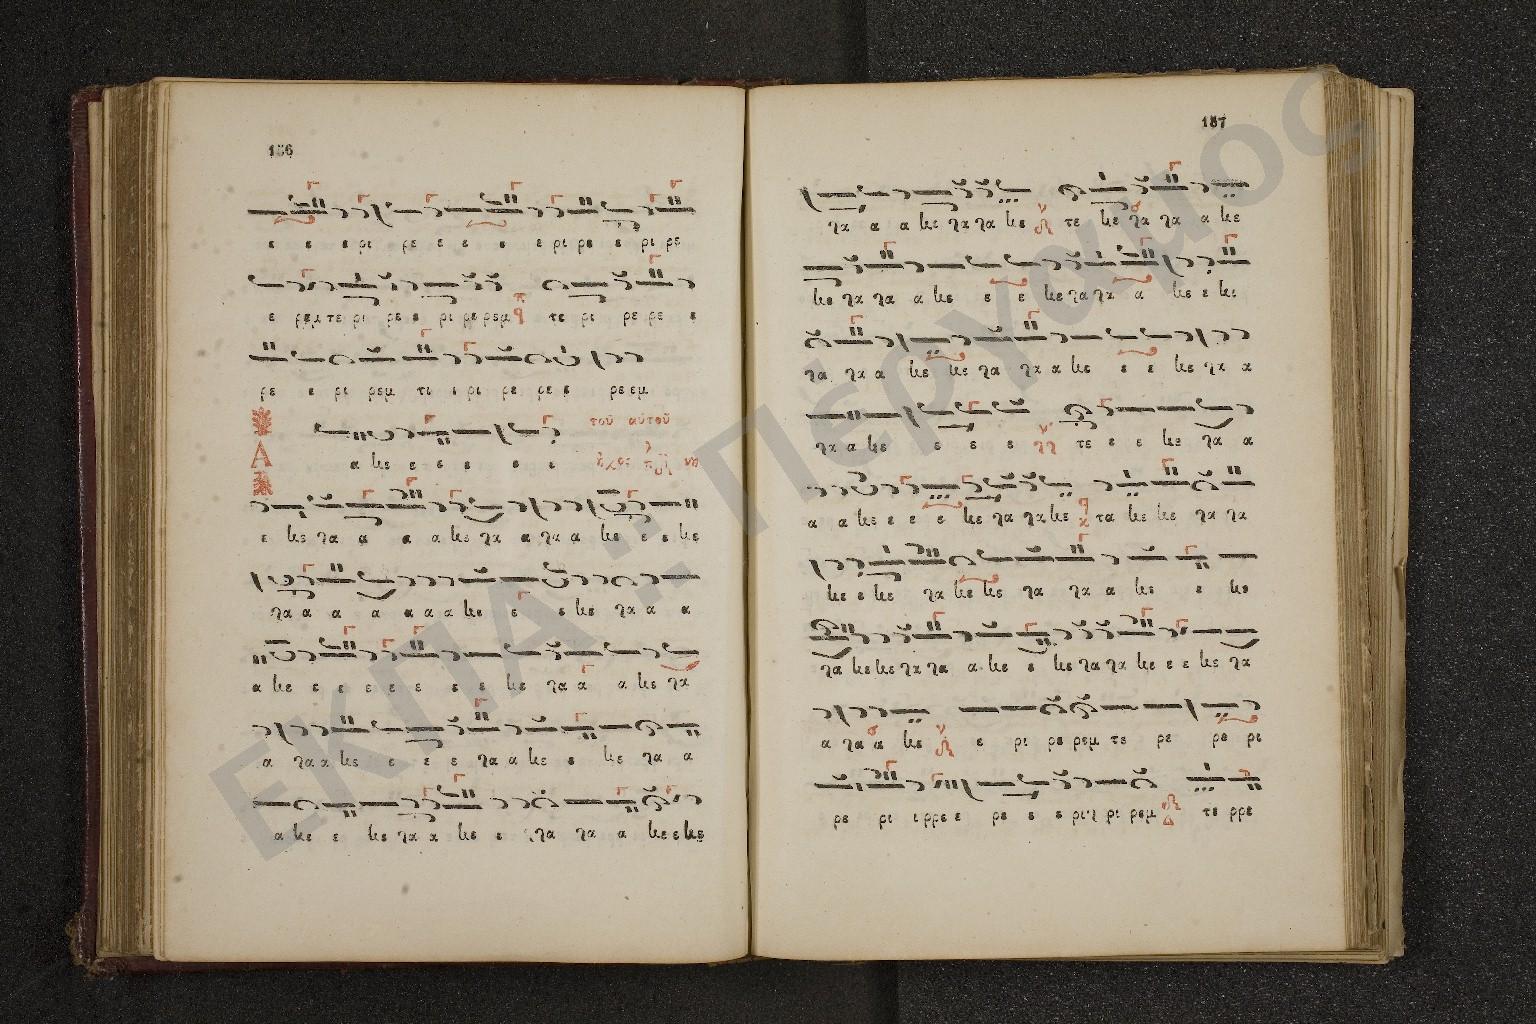 156
ε ε ε ρι ρε ε ε ε ε ρι ρε ε ρι ρε
ε ρεμ τε ρι ρε ε ρι ρε ρεμ τε ρι ρε ρε ε
ρε ε ρι ρεμ τι ι ρι ρε ρε ε ρε εμ
τοῦ αὐτοῦ
Α α κε ε ε ε ε ι ἦχος
ε κε γα α α α κε γα α γα α κε ε ε κε
γα α α α α α α κε ε ε κε γα α α
α κε ε ε ε ε ε ε ε κε γα α α α κε γα
α γα α κε ε ε ε γα α κε ε κε γα α
α κε ε κε γα α κε ε γα γα α κε ε κε
157
γα α α κε γα γα κε τε κε γα γα α κε
κε γα γα α κε ε ε κε γα γα α κε ε κι
γα γα α κε κε γα γα α κε ε ε κε γα α
γα α κε ε ε ε τε ε ε κε γα α
α α κε ε ε ε κε γα γα κε τα κε κε γα γα
κε ε κε γα κε κε γα γα α κε ε κε
γα κε κε γα γα α κε ε κε γα γα κε ε ε κε γα
α γα α κε ε ρι ρε ρεμ τε ρε ρε ρι
ρε ρι ι ρρε ε ρε ε ε ρι ρι ρεμ τε ρρε
ΕΚΠΑ :: Πέργαμος